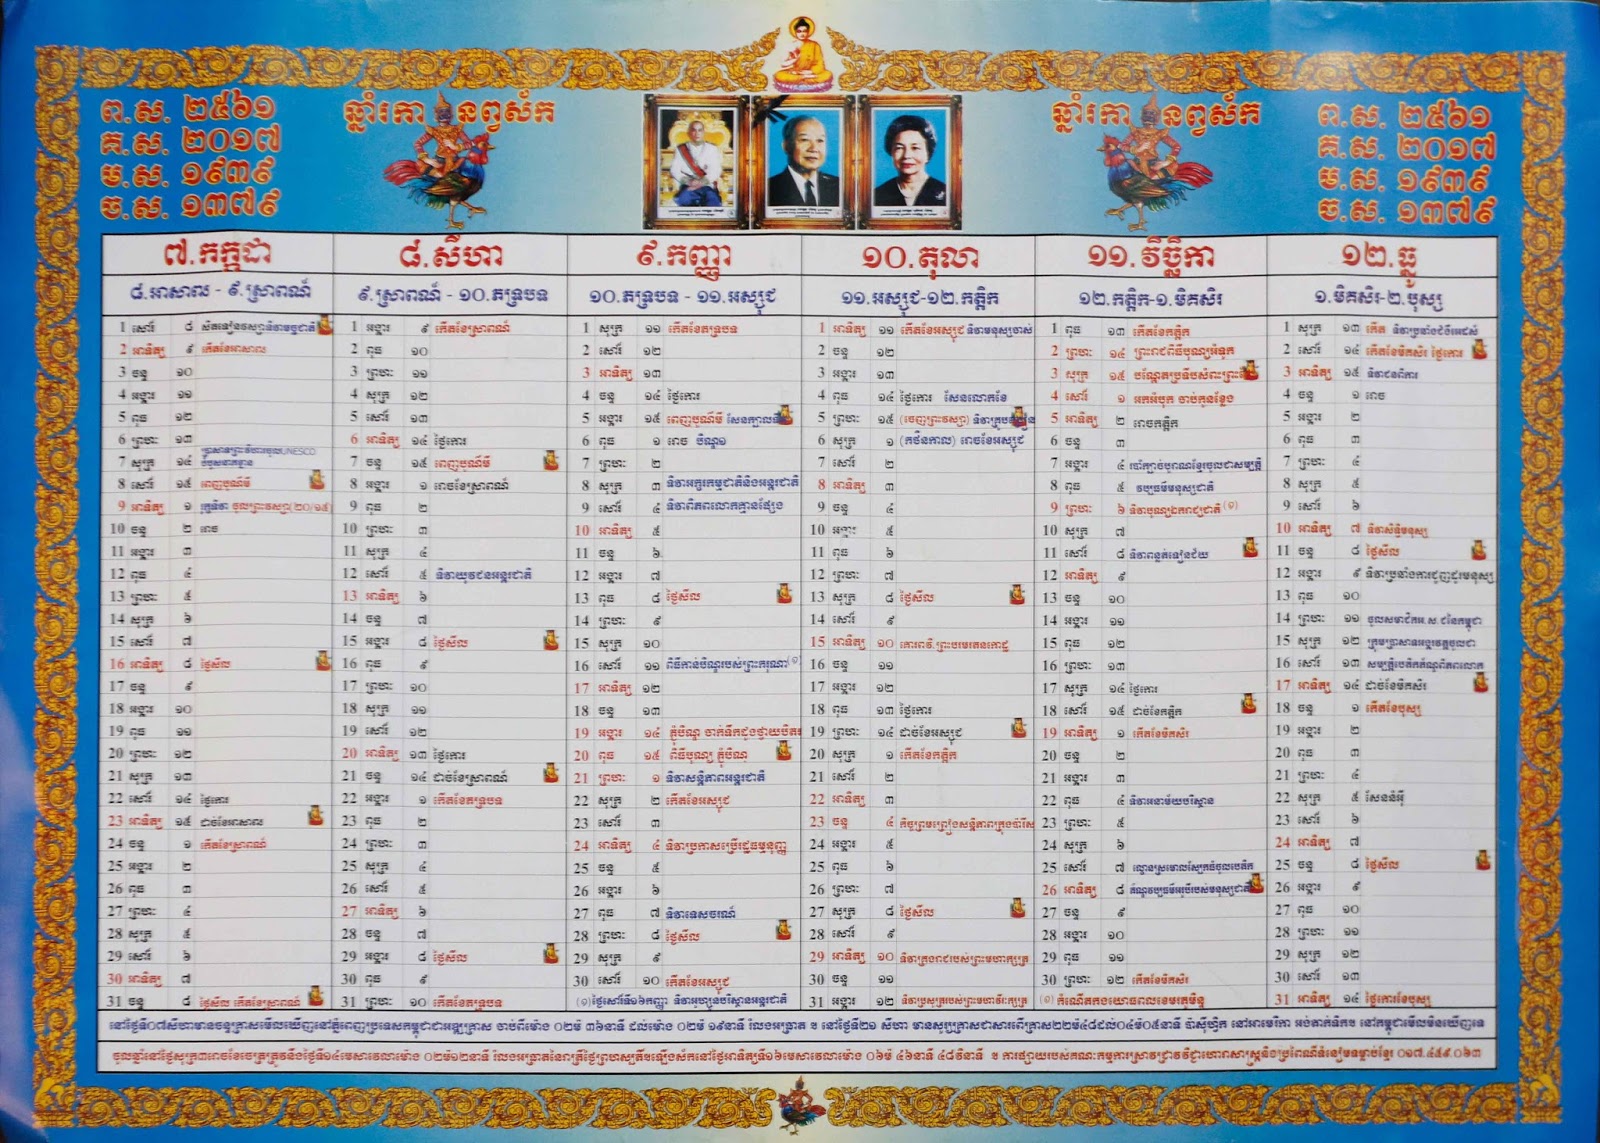 ព.ស. ២៥៦១
គ.ស. ២០១៧
ម.ស. ១៩៣៩
ច.ស. ១៣៧៩
ឆ្នាំរកា នព្វស័ក
ឆ្នាំរកា នព្វស័ក
ព.ស. ២៥៦១
គ.ស. ២០១៧
ម.ស. ១៩៣៩
ច.ស. ១៣៧៩
៧.កក្កដា
៨.អាសាឍ - ៩.ស្រាពណ៍
2 អាទិត្យ ៩ កើតខែអាសាឍ
3 ចន្ទ ១០
4 អង្គារ ១១
5 ពុធ ១២
6 ព្រហ: ១៣
8 សៅរ៍ ១៥ ពេញបូណ៌មី
10 ចន្ទ ២ រោច
11 អង្គារ ៣
12 ពុធ ៤
13 ព្រហ: ៥
14 សុក្រ ៦
15 សៅរ៍ ៧
16 អាទិត្យ ៨ ថ្ងៃសីល
17 ចន្ទ ៩
18 អង្គារ ១០
19 ពុធ ១១
20 ព្រហ: ១២
21 សុក្រ ១៣
22 សៅរ៍ ១៤ ថ្ងៃកោរ
23 អាទិត្យ ១៥ ដាច់ខែអាសាឍ
24 ចន្ទ ១ កើតខែស្រាពណ៍
25 អង្គារ ២
26 ពុធ ៣
27 ព្រហ: ៤
28 សុក្រ ៥
29 សៅរ៍ ៦
30 អាទិត្យ ៧
31 ចន្ទ ៨ ថ្ងៃសីល កើតខែស្រាពណ៍
៨.សីហា
៩.ស្រាពណ៍ - ១០.ភទ្របទ
1 អង្គារ ៩ កើតខែស្រាពណ៍
2 ពុធ ១០
3 ព្រហ: ១១
4 សុក្រ ១២
5 សៅរ៍ ១៣
6 អាទិត្យ ១៤ ថ្ងៃកោរ
7 ចន្ទ ១៥ ពេញបូណ៌មី
8 អង្គារ ១ រោចខែស្រាពណ៍
9 ពុធ ២
10 ព្រហ: ៣
11 សុក្រ ៤
12 សៅរ៍ ៥ ទិវាយុវជនអន្តរជាតិ
13 អាទិត្យ ៦
14 ចន្ទ ៧
15 អង្គារ ៨ ថ្ងៃសីល
16 ពុធ ៩
17 ព្រហ: ១០
18 សុក្រ ១១
19 សៅរ៍ ១២
20 អាទិត្យ ១៣ ថ្ងៃកោរ
21 ចន្ទ ១៤ ដាច់ខែស្រាពណ៍
22 អង្គារ ១ កើតខែភទ្របទ
23 ពុធ ២
24 ព្រហ: ៣
25 សុក្រ ៤
26 សៅរ៍ ៥
27 អាទិត្យ ៦
28 ចន្ទ ៧
29 អង្គារ ៨ ថ្ងៃសីល
30 ពុធ ៩
31 ព្រហ: ១០ កើតខែភទ្របទ
៩.កញ្ញា
១០.ភទ្របទ - ១១.អស្សុជ
1 សុក្រ ១១ កើតខែភទ្របទ
2 សៅរ៍ ១២
3 អាទិត្យ ១៣
4 ចន្ទ ១៤ ថ្ងៃកោរ
5 អង្គារ ១៥ ពេញបូណ៌មី
6 ពុធ ១ រោច បិណ្ឌ១
7 ព្រហ: ២
8 សុក្រ ៣
9 សៅរ៍ ៤
10 អាទិត្យ ៥
11 ចន្ទ ៦
12 អង្គារ ៧
13 ពុធ ៨ ថ្ងៃសីល
14 ព្រហ: ៩
15 សុក្រ ១០
16 សៅរ៍ ១១
17 អាទិត្យ ១២
18 ចន្ទ ១៣
19 អង្គារ ១៤
20 ពុធ ១៥ ពិធីបុណ្យ ភ្ជុំបិណ្ឌ
21 ព្រហ: ១ ទិវាសន្តិភាពអន្តរជាតិ
22 សុក្រ ២ កើតខែអស្សុជ
23 សៅរ៍ ៣
24 អាទិត្យ ៤ ទិវាប្រកាសប្រើរដ្ឋធម្មនុញ្ញ
25 ចន្ទ ៥
26 អង្គារ ៦
27 ពុធ ៧ ទិវាទេសចរណ៍
28 ព្រហ: ៨ ថ្ងៃសីល
29 សុក្រ ៩
30 សៅរ៍ ១០ កើតខែអស្សុជ
១០.តុលា
១១.អស្សុជ-១២.កត្តិក
1 អាទិត្យ ១១ កើតខែអស្សុជ ទិវាមនុស្សចាស់
2 ចន្ទ ១២
3 អង្គារ ១៣
4 ពុធ ១៤ ថ្ងៃកោរ សែនលោកខែ
5 ព្រហ: ១៥ (ចេញព្រះវស្សា)
6 សុក្រ ១ (កឋិនកាល) រោចខែអស្សុជ
7 សៅរ៍ ២
8 អាទិត្យ ៣
9 ចន្ទ ៤
10 អង្គារ ៥
11 ពុធ ៦
12 ព្រហ: ៧
13 សុក្រ ៨ ថ្ងៃសីល
14 សៅរ៍ ៩
15 អាទិត្យ ១០ គោរពវិ.ព្រះបរមរតនកោដ្ឋ
16 ចន្ទ ១១
17 អង្គារ ១២
18 ពុធ ១៣ ថ្ងៃកោរ
19 ព្រហ: ១៤ ដាច់ខែអស្សុជ
20 សុក្រ ១ កើតខែកត្តិក
21 សៅរ៍ ២
22 អាទិត្យ ៣
23 ចន្ទ ៤ កិច្ចព្រមព្រៀងសន្តិភាពក្រុងប៉ារីស
24 អង្គារ ៥
25 ពុធ ៦
26 ព្រហ: ៧
27 សុក្រ ៨ ថ្ងៃសីល
28 សៅរ៍ ៩
29 អាទិត្យ ១០ ទិវាគ្រងរាជរបស់ព្រះមហាក្សត្រ
30 ចន្ទ ១១
31 អង្គារ ១២
១១.វិច្ឆិកា
១២.កត្តិក-១.មិគសិរ
1 ពុធ ១៣ កើតខែកត្តិក
2 ព្រហ: ១៤ ព្រះរាជពិធីបុណ្យអុំទូក
3 សុក្រ ១៥
4 សៅរ៍ ១ អកអំបុក ចាប់កូនខ្លែង
5 អាទិត្យ ២ រោចកត្តិក
6 ចន្ទ ៣
7 អង្គារ ៤
8 ពុធ ៥ វប្បធម៌មនុស្សជាតិ
9 ព្រហ: ៦ ទិវាបុណ្យឯករាជ្យជាតិ (១)
10 សុក្រ ៧
11 សៅរ៍ ៨
12 អាទិត្យ ៩
13 ចន្ទ ១០
14 អង្គារ ១១
15 ពុធ ១២
16 ព្រហ: ១៣
17 សុក្រ ១៤ ថ្ងៃកោរ
18 សៅរ៍ ១៥ ដាច់ខែកត្តិក
19 អាទិត្យ ១ កើតខែមិគសិរ
20 ចន្ទ ២
21 អង្គារ ៣
22 ពុធ ៤ ទិវាអនាម័យបរិស្ថាន
23 ព្រហ: ៥
24 សុក្រ ៦
25 សៅរ៍ ៧
26 អាទិត្យ ៨
27 ចន្ទ ៩
28 អង្គារ ១០
29 ពុធ ១១
30 ព្រហ: ១២ កើតខែមិគសិរ
១២.ធ្នូ
១.មិគសិរ-២.បុស្ស
1 សុក្រ ១៣ កើត ទិវាប្រឆាំងជំងឺអេដស៍
2 សៅរ៍ ១៤ កើតខែមិគសិរ ថ្ងៃកោរ
3 អាទិត្យ ១៥ ទិវាជនពិការ
4 ចន្ទ ១ រោច
5 អង្គារ ២
6 ពុធ ៣
7 ព្រហ: ៤
8 សុក្រ ៥
9 សៅរ៍ ៦
10 អាទិត្យ ៧ ទិវាសិទ្ធិមនុស្ស
11 ចន្ទ ៨ ថ្ងៃសីល
12 អង្គារ ៩ ទិវាប្រឆាំងការជួញដូរមនុស្ស
13 ពុធ ១០
14 ព្រហ: ១១ ចូលសមាជិកអ.ស.ជនៃកម្ពុជា
15 សុក្រ ១២
16 សៅរ៍ ១៣
17 អាទិត្យ ១៤ ដាច់ខែមិគសិរ
18 ចន្ទ ១ កើតខែបុស្ស
19 អង្គារ ២
20 ពុធ ៣
21 ព្រហ: ៤
22 សុក្រ ៥
23 សៅរ៍ ៦
24 អាទិត្យ ៧
25 ចន្ទ ៨ ថ្ងៃសីល
26 អង្គារ ៩
27 ពុធ ១០
28 ព្រហ: ១១
29 សុក្រ ១២
30 សៅរ៍ ១៣
31 អាទិត្យ ១៤ ថ្ងៃកោរខែបុស្ស